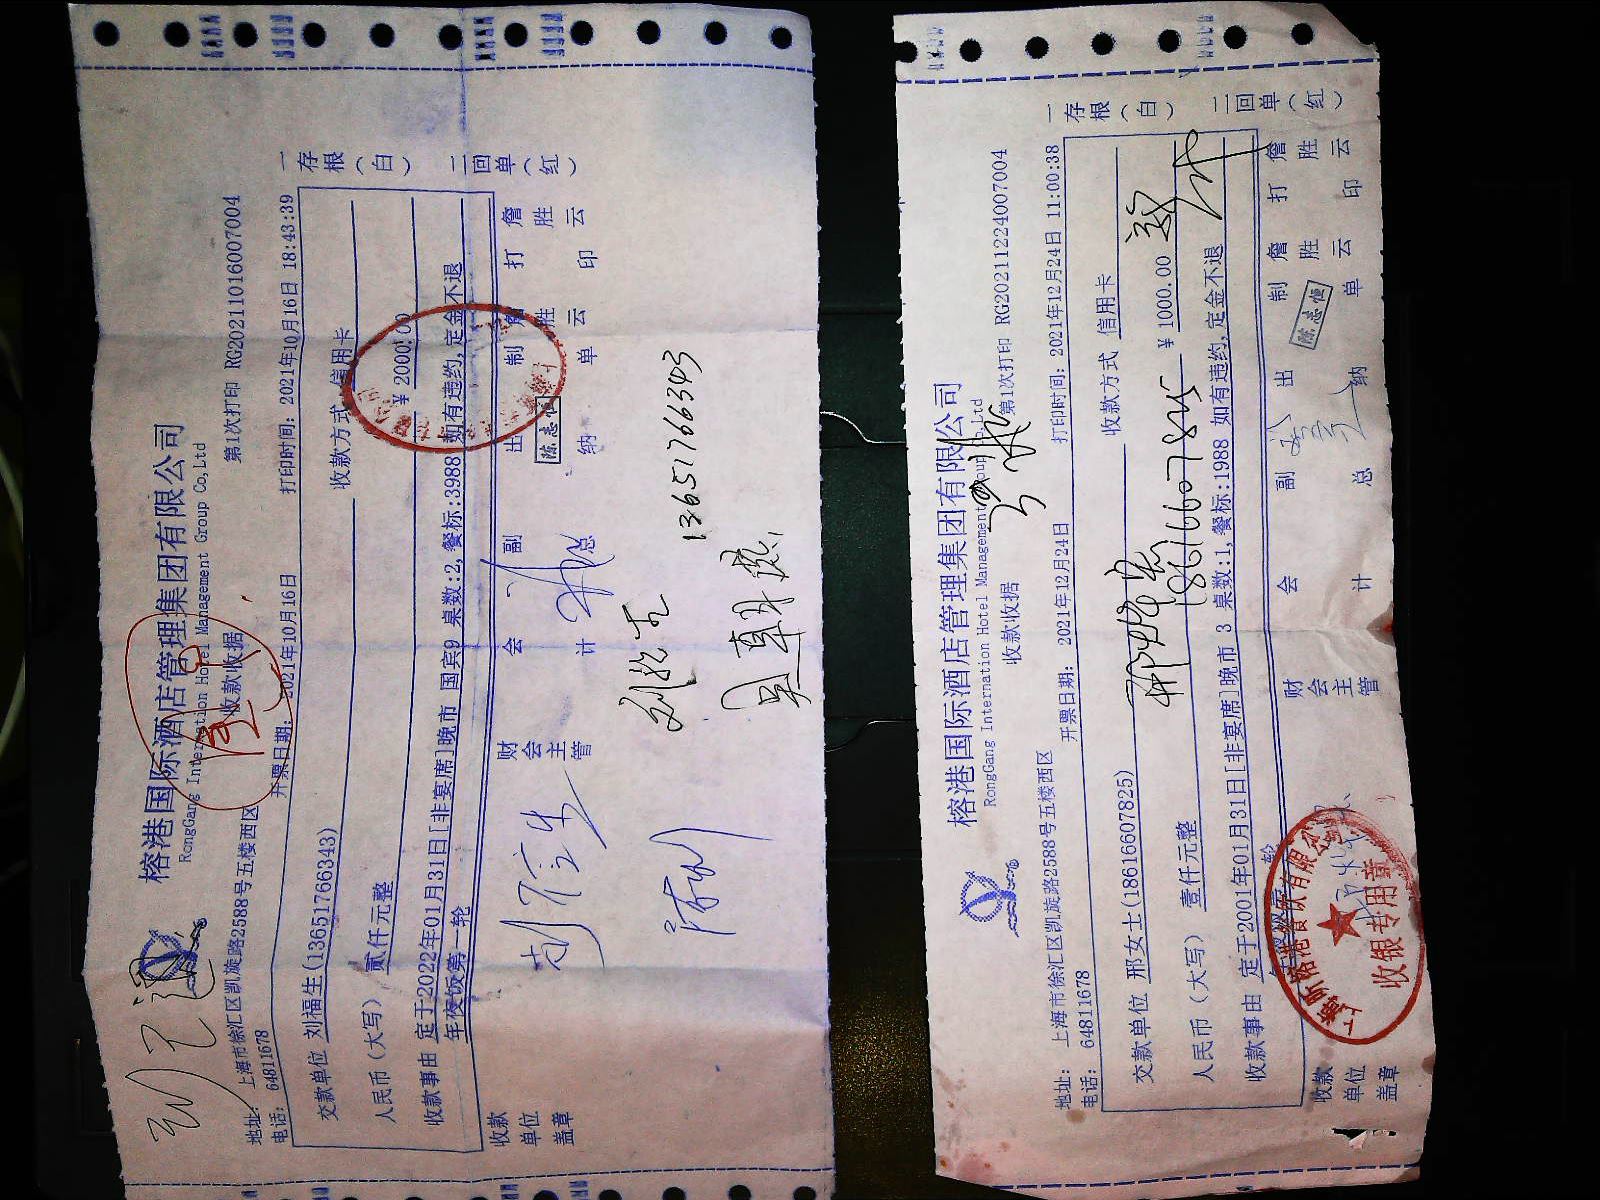 榕港国际酒店管理集团有限公司
RongGang International Hotel Management Group Co,Ltd
收款收据
第1次打印 RG20211016007004
地址: 上海市徐汇区凯旋路2588号五楼西区
电话: 64811678
开票日期: 2021年10月16日
打印时间: 2021年10月16日 18:43:39
交款单位 刘福生(13651766343)
收款方式 信用卡
人民币(大写) 贰仟元整
¥ 2000.00
收款事由 定于2022年01月31日[非宴席]晚市 国宾9 桌数:2,餐标:3988 如有违约,定金不退
年夜饭第一轮
收款单位盖章
财会主管
会计
副总
出纳
陈志恒
制单 詹胜云
打印 詹胜云
一存根(白)
二回单(红)
13651766343
榕港国际酒店管理集团有限公司
RongGang International Hotel Management Group Co,Ltd
收款收据
第1次打印 RG20211224007004
地址: 上海市徐汇区凯旋路2588号五楼西区
电话: 64811678
开票日期: 2021年12月24日
打印时间: 2021年12月24日 11:00:38
交款单位 邢女士(18616607825)
收款方式 信用卡
18616607825
人民币(大写) 壹仟元整
¥ 1000.00
收款事由 定于2001年01月31日[非宴席]晚市 3 桌数:1,餐标:1988 如有违约,定金不退
收款单位盖章
收银专用章
财会主管
会计
副总
出纳
陈志恒
制单 詹胜云
打印 詹胜云
一存根(白)
二回单(红)